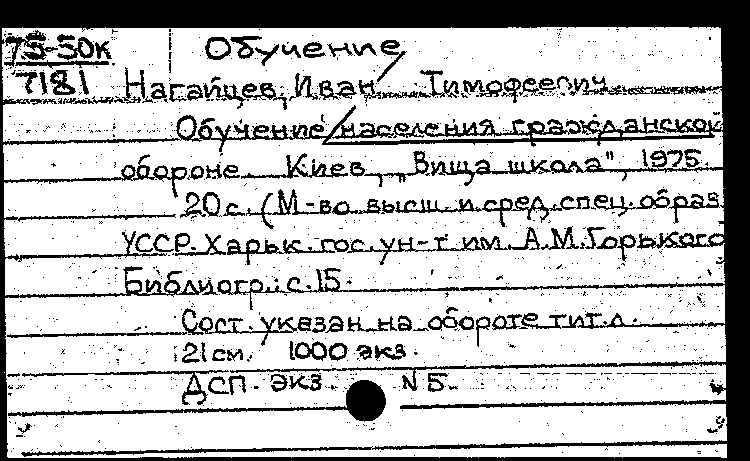 75-50к Обучение
7181 Нагайцев, Иван Тимофеевич
Обучение/населения гражданской
обороне. Киев, „Вища школа", 1975.
20 с. (М-во высш. и сред. спец. образ
УССР. Харьк. гос. ун-т им. А.М.Горького
Библиогр.: с. 15.
Сост. указан на обороте тит. л.
21 см. 1000 экз.
ДСП. экз. N 5.